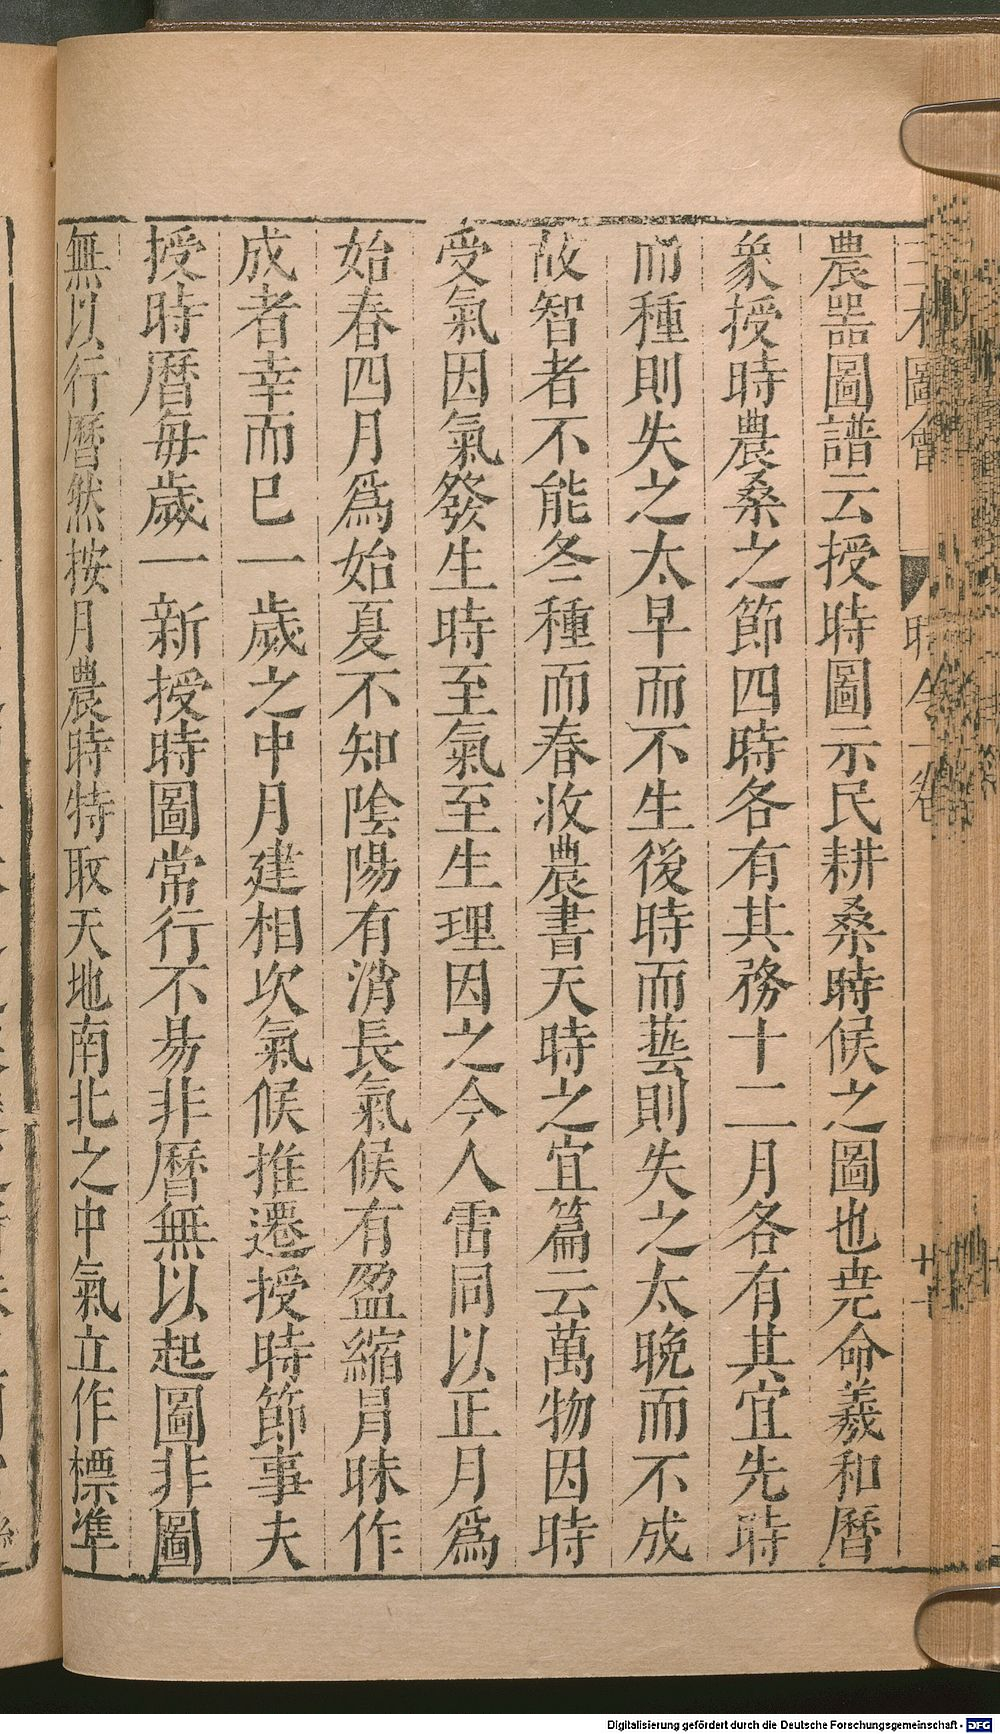 三才圖會 時令一卷 十一
農器圖譜云授時圖示民耕桑時候之圖也尭命羲和曆
象授時農桑之節四時各有其務十二月各有其宜先時
而種則失之太早而不生後時而蓺則失之太晚而不成
故智者不能冬種而春收農書天時之宜篇云萬物因時
受氣因氣發生時至氣至生理因之今人雷同以正月爲
始春四月爲始夏不知陰陽有消長氣候有盈縮冐昧作
成者幸而已一歲之中月建相次氣候推遷授時節事夫
授時曆每歲一新授時圖常行不易非曆無以起圖非圖
無以行曆然按月農時特取天地南北之中氣立作標準
Digitalisierung gefördert durch die Deutsche Forschungsgemeinschaft - DFG